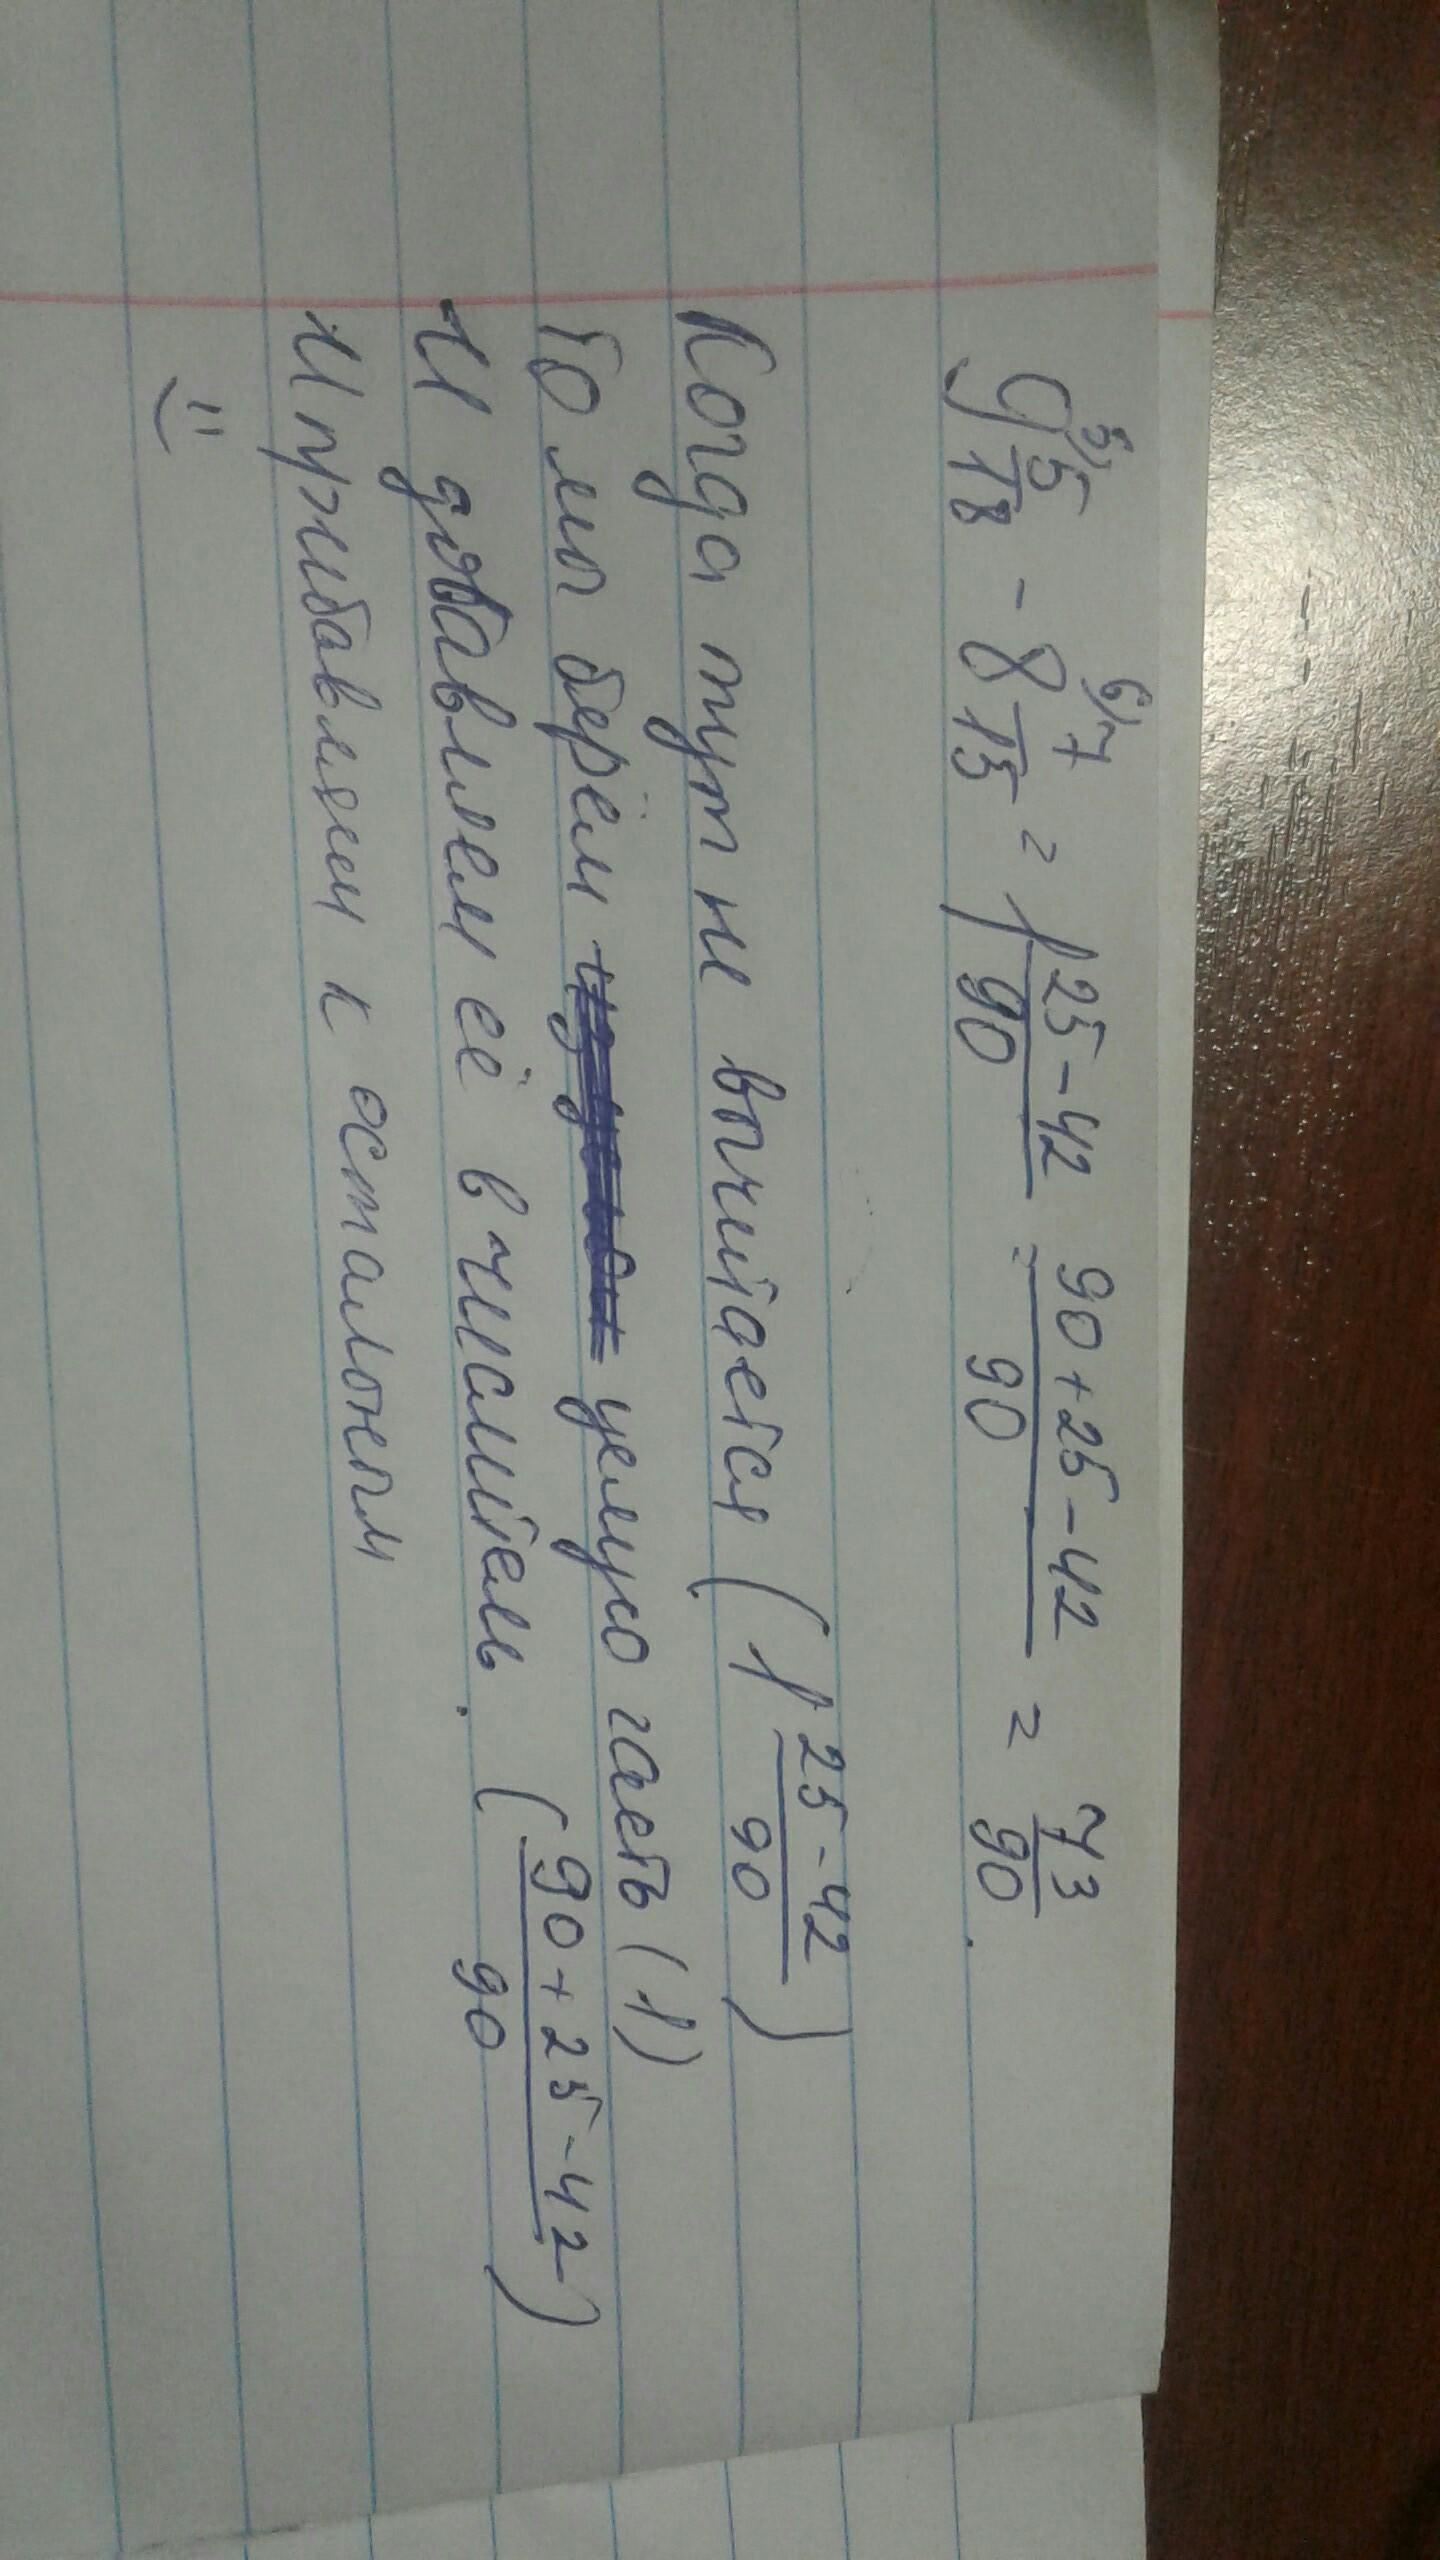 9 ⁵⁾5/18 - 8 ⁶⁾7/15 = 1 25-42/90 = 90+25-42/90 = 73/90.
Когда тут не вычитается (1 25-42/90)
То мы берём целую часть (1)
И добавляем её в числитель. (90+25-42/90)
И прибавляем к остальным
:)